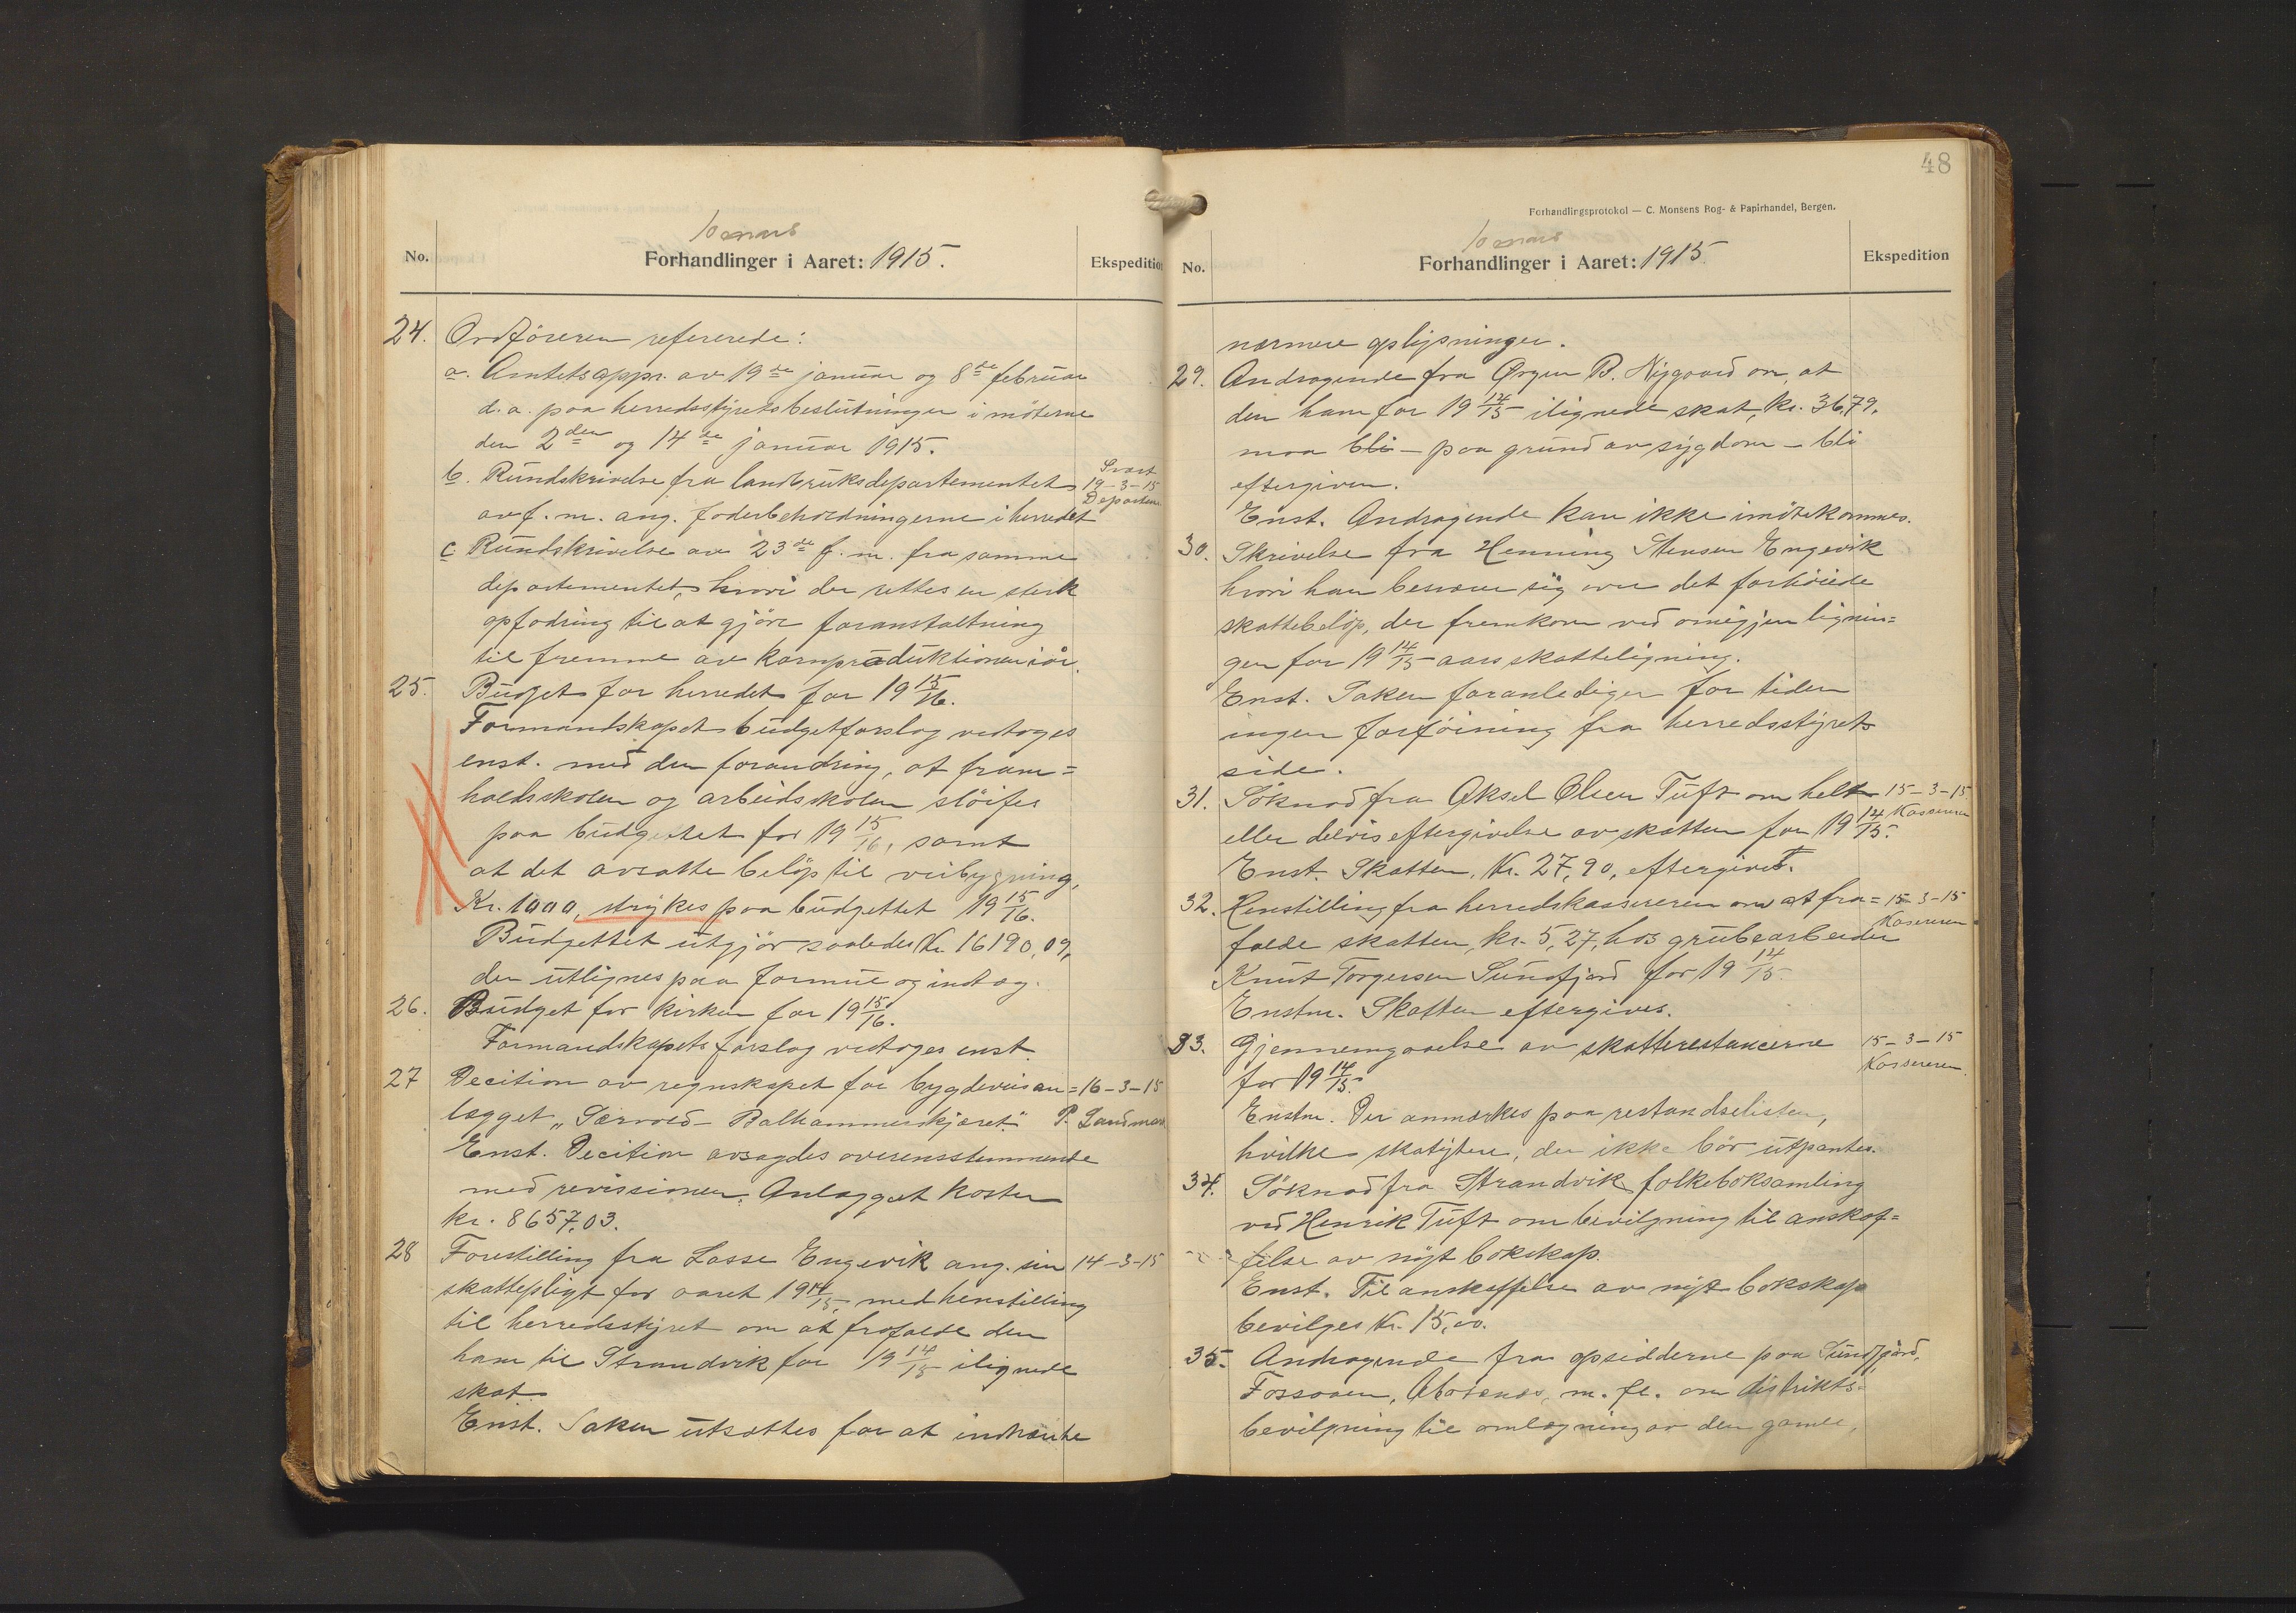 10 mars
No.
Forhandlinger i Aaret: 1915.
Ekspedition
24. Ordföreren refererede:
a. Amtets appr. av 19de januar og 8de februar
d. a. paa herredsstyrets beslutninger i möterne
den 2den og 14de januar 1915.
b. Rundskrivelse fra landbruksdepartementet
Svart
19-3-15
Departem.
av f. m. ang. foderbeholdningerne i herredet
c Rundskrivelse av 23de f. m. fra samme
departementet, hvori der rettes en sterk
opfodring til at gjöre foranstaltning
til fremme av kornproduktionen iår.
25. Budget for herredet for 19 15/16.
Formandskapets budgetforslag vedtoges
enst. med den forandring, at fram=
haldsskolen og arbeidsskolen slöifes
paa budgettet for 19 15/16, samt
at det avsatte belöp til veibygning,
Kr. 1000, strykes paa budgettet 19 15/16.
Budgettet utgjör saaledes Kr. 16190,09,
der utlignes paa formue og indtæg.
26. Budget for kirken for 19 15/16.
Formandskapets forslag vedtoges enst.
27 Decition av regnskapet for bygdeveisan= 16-3-15
lægget "Særvold - Balhammerskjæret." P. Landmark
Enst. Decition avsagdes overensstemmende
med revissionen. Anlægget koster
kr. 8657,03.
28 Forestilling fra Lasse Engevik ang. sin 14-3-15
skattepligt for aaret 19 14/15, med henstilling
til herredsstyret om at frafalde den
ham til Strandvik for 19 14/15 ilignede
skat.
Enst. Saken utsættes for at indhente
48
Forhandlingsprotokol — C. Monsens Bog- & Papirhandel, Bergen.
10 mars
No.
Forhandlinger i Aaret: 1915
Ekspedition
nærmere oplysninger.
29. Andragende fra Ørgen B. Nygaard om, at
den ham for 19 14/15 ilignede skat, kr. 36,79.
maa bli - paa grund av sygdom - bli
eftergiven.
Enst. Andragende kan ikke imötekommes.
30. Skrivelse fra Henning Stensen Engevik
hvori han besværer sig over det forhöiede
skattebelöp, der fremkom ved omigjen lignin=
gen for 19 14/15 aars skatteligning.
Enst. Saken foranlediger for tiden
ingen forföining fra herredsstyrets
side.
31. Söknad fra Aksel Olsen Tuft om helt 15-3-15
Kassereren
eller delvis eftergivelse av skatten for 19 14/15.
Enst. Skatten, Kr. 27,90, eftergives.
32. Henstilling fra herredskassereren om at fra= 15-3-15
Kassereren
falde skatten, kr. 5,27, hos grubearbeider
Knut Torgersen Sundfjord for 19 14/15.
Enstm. Skatten eftergives.
33. Gjennemgaaelse av skatterestancerne 15-3-15
Kassereren.
for 19 14/15.
Enstm. Der anmerkes paa restandselisten,
hvilke skatydere, der ikke bör utpantes.
34. Söknad fra Strandvik folkeboksamling
ved Henrik Tuft om bevilgning til anskaf=
felse av nyt bokskap.
Enst. Til anskaffelse av nyt bokskap
bevilges Kr. 15,00.
35. Andragende fra opsidderne paa Sundfjord,
Fossaaen, m. fl. om distrikts=
bevilgning til omlægning av den gamle,